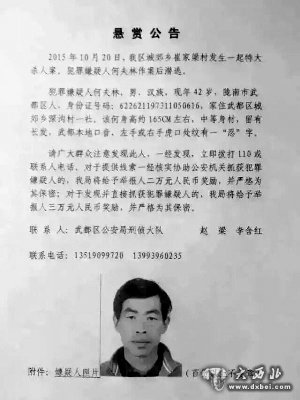 悬赏公告
2015年10月20日，我区城郊乡崔家梁村发生一起特大
杀人案。犯罪嫌疑人何夫林作案后潜逃。
犯罪嫌疑人何夫林，男，汉族，现年42岁，陇南市武
都区人，身份证号：622621197311050616，家住武都区城
郊乡深沟村一社。该何身高约165CM左右，中等身材，留有
长发，武都本地口音，左手或右手虎口处纹有一“忍”字。
请广大群众注意发现此人，一经发现，立即拨打110或
联系人电话。对于提供线索一经核实协助公安机关抓获犯罪
嫌疑人的，我局将给予举报人二万元人民币奖励，并严格为
其保密；对于发现并直接抓获犯罪嫌疑人的，我局将给予举
报人三万元人民币奖励，并严格为其保密。
联系人：武都区公安局刑侦大队 赵梁 李含红
联系电话：13519099720 13993960235
附件：嫌疑人照片
大西北
www.dxbei.com